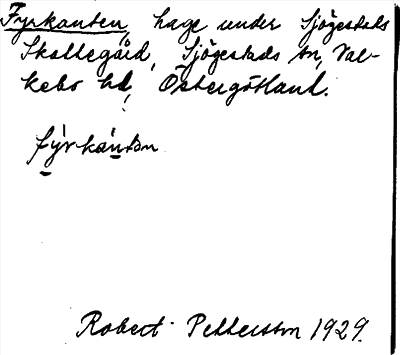 Fyrkanten, hage under Sjögestads
Skattegård, Sjögestads sn, Val-
kebo hd, Östergötland.
fý̱rkàṉtən
Robert Pettersson 1929.